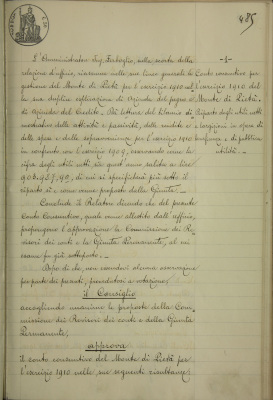 485
L'Amministratore Sig. Farbaglio, sulla scorta della
- 1 -
relazione d'ufficio, riassume nelle sue linee generali il Conto consuntivo per
gestione del Monte di Pietà per l'esercizio 1910
la sua duplice esplicazione di Azienda del pegno o Monte di Pietà
di Azienda del Credito. Dà lettura del bilancio di riparto degli utili netti
delle attività e passività, delle rendite e
delle spese e delle sopravvenienze per l'esercizio 1910
in confronto con l'esercizio 1909, osservando come la
cifra degli utili netti, che quest'anno salita a lire
90.619,27,93, di cui si specificherà più sotto il
riparto si è come venne proposto dalla Giunta.
Conclude il Relatore dicendo che del presente
Conto Consuntivo, quale venne allestito dall'ufficio,
propongono l'approvazione la Commissione dei Re-
visori dei conti e la Giunta Permanente, al cui
esame fu già sottoposto.
Dopo di che, non essendovi alcuna osservazione
per parte dei presenti, procedutosi a votazione,
il Consiglio
accogliendo unanime le proposte della Com-
missione dei Revisori dei conti e della Giunta
Permanente,
approva
il conto consuntivo del Monte di Pietà per
l'esercizio 1910 nelle sue seguenti risultanze: